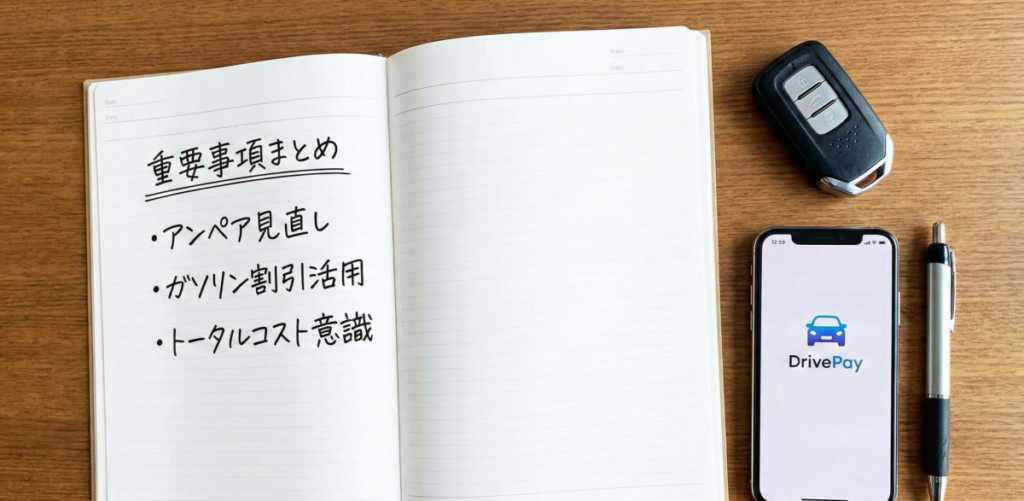 Date
Date
重要事項まとめ
・アンペア見直し
・ガソリン割引活用
・トータルコスト意識
Date
12:29
DrivePay